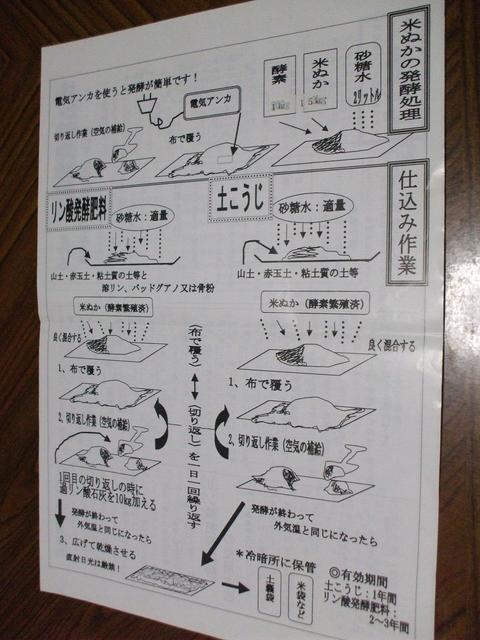 米ぬかの発酵処理
砂糖水
2リットル
米ぬか
酵素
電気アンカを使うと発酵が簡単です！
電気アンカ
布で覆う
切り返し作業（空気の補給）
仕込み作業
土こうじ
砂糖水：適量
山土・赤玉土・粘土質の土等
米ぬか（酵素繁殖済）
良く混合する
1、布で覆う
2、切り返し作業（空気の補給）
発酵が終わって
外気温と同じになったら
リン酸発酵肥料
砂糖水：適量
山土・赤玉土・粘土質の土等と
溶リン、バッドグアノ又は骨粉
米ぬか（酵素繁殖済）
良く混合する
1、布で覆う
2、切り返し作業（空気の補給）
1回目の切り返しの時に
過リン酸石灰を10kg加える
発酵が終わって
外気温と同じになったら
3、広げて乾燥させる
直射日光は厳禁！
（布で覆う）
（切り返し）を一日一回繰り返す
＊冷暗所に保管
土嚢袋
米袋など
◎有効期間
土こうじ：1年間
リン酸発酵肥料：
2～3年間